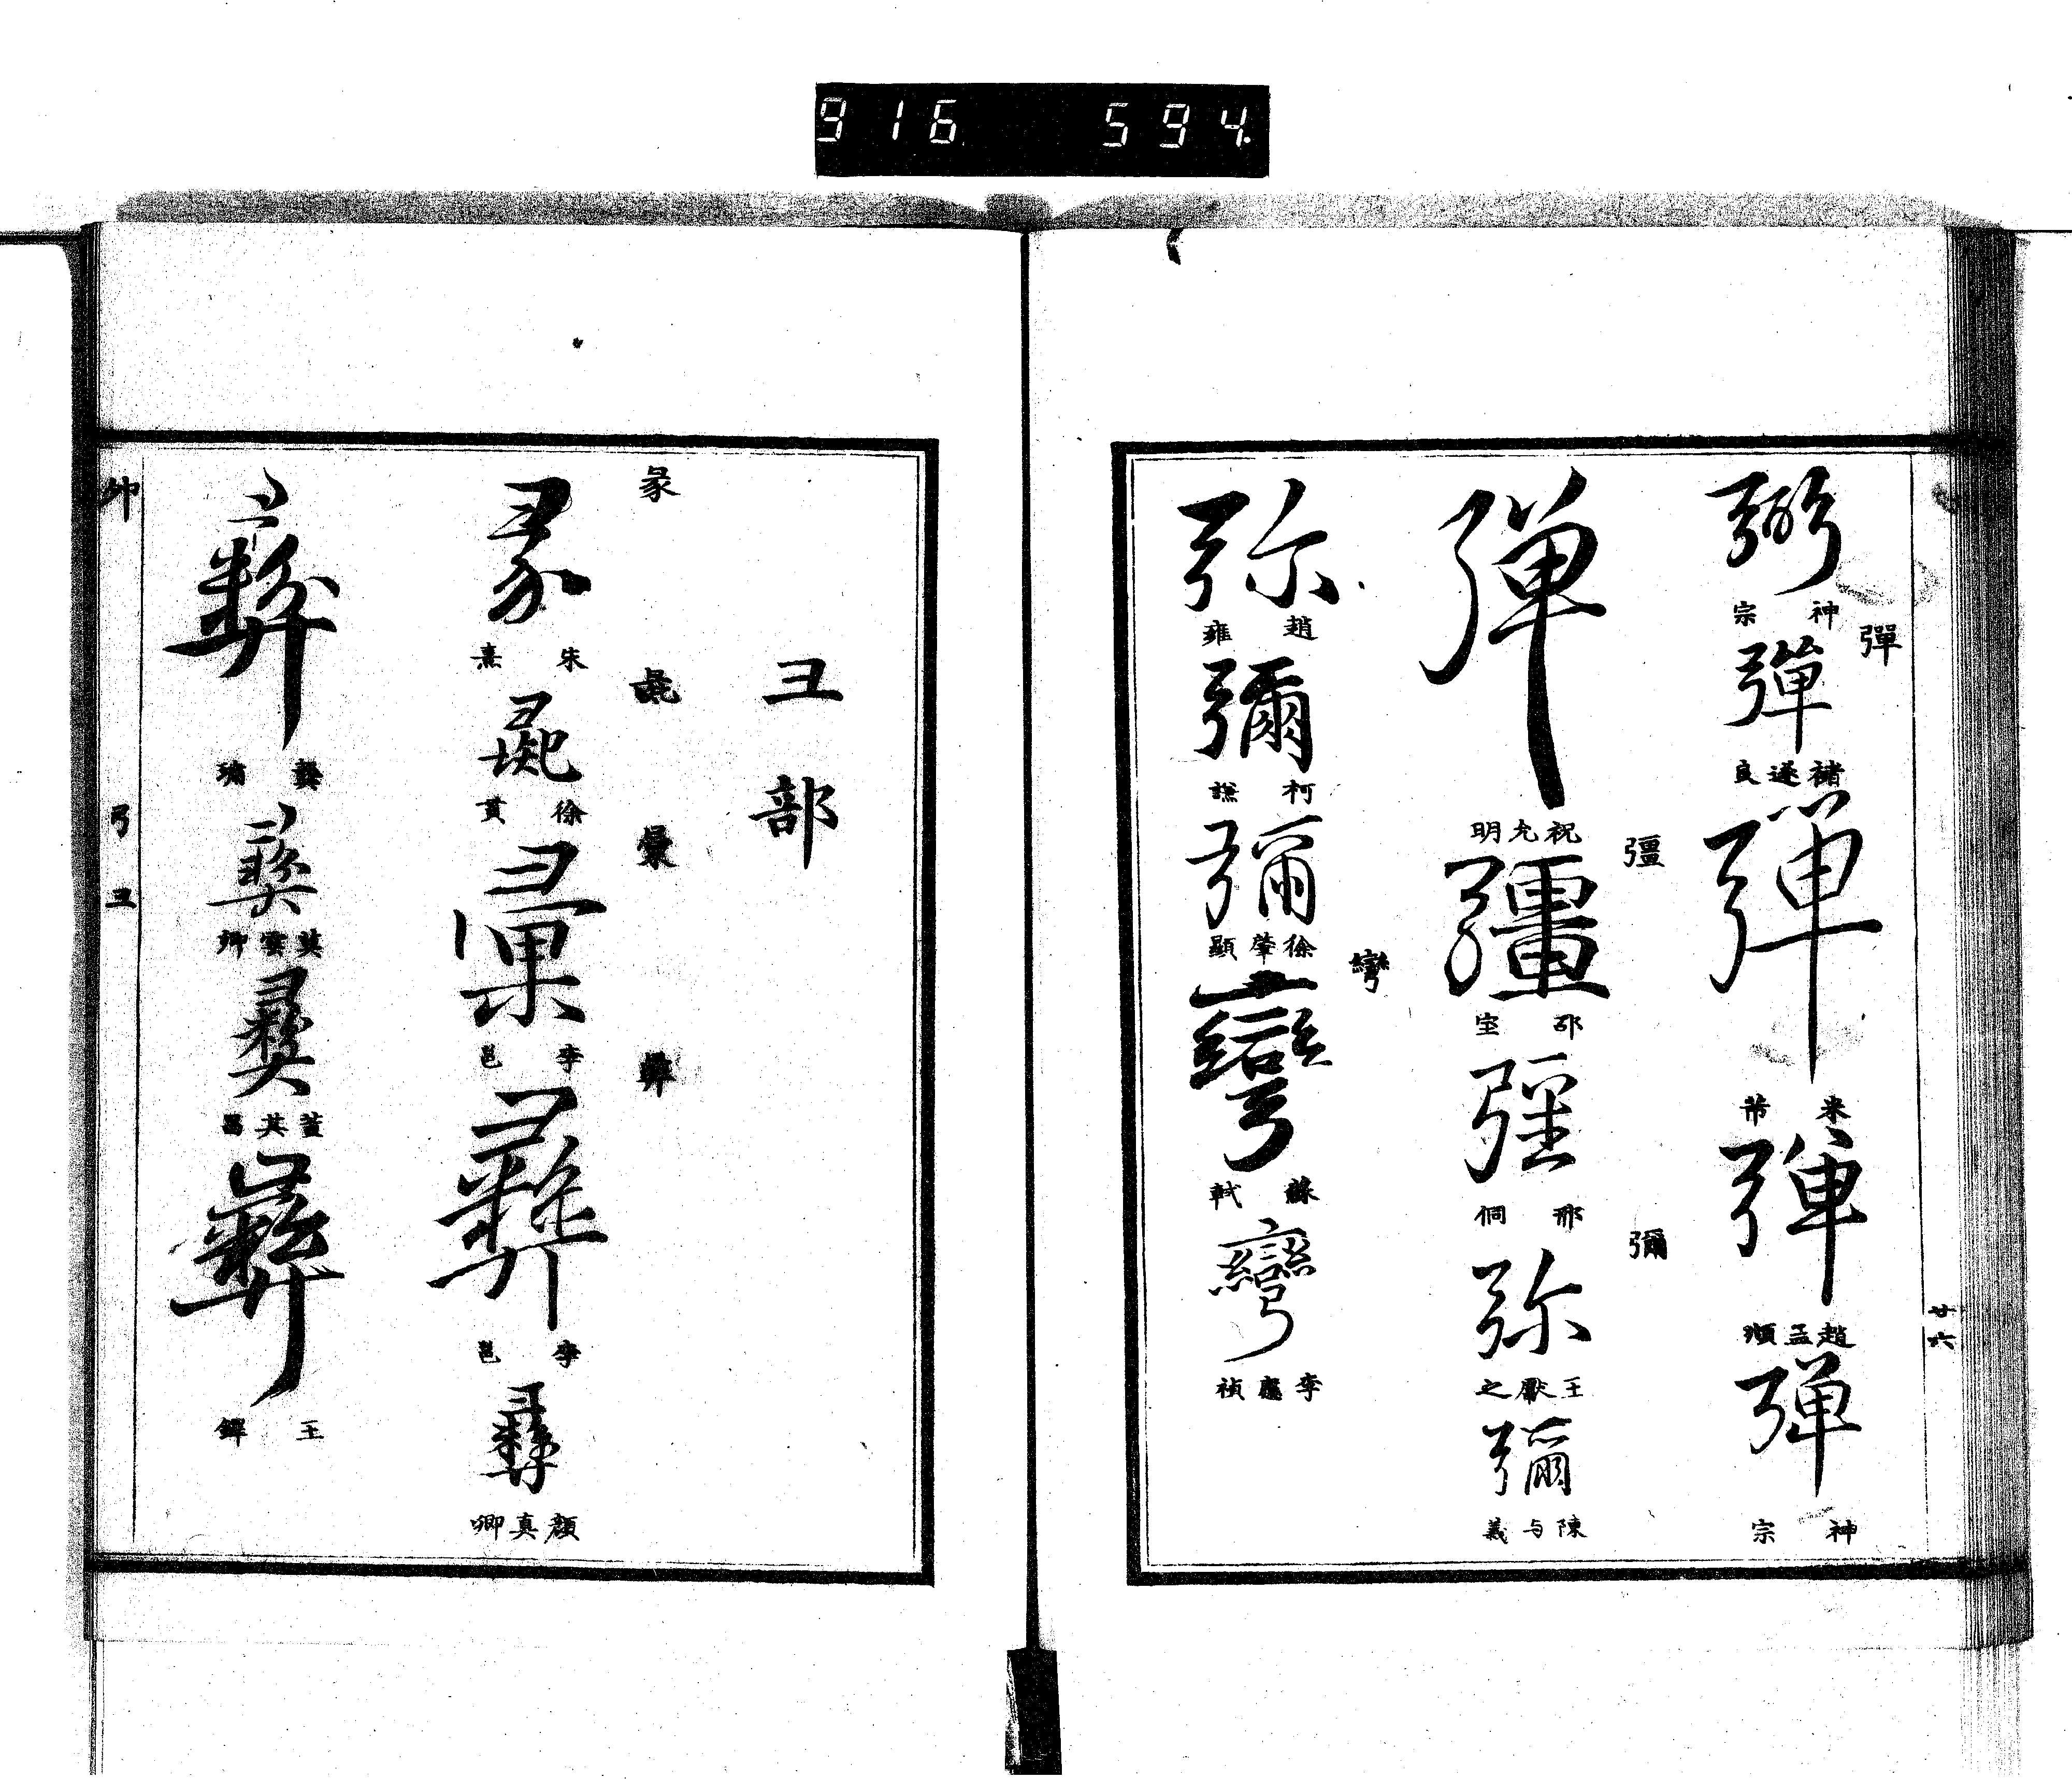 916 594.
廿六
彈
弼
神宗
彈
褚遂良
彈
米芾
彈
趙孟頫
彈
神宗
彊
彌
彈
祝允明
彊
邵宝
彊
邢侗
弥
王獻之
彌
陳与義
彎
弥
趙雍
彌
柯謙
彌
徐肇顯
彎
蘇軾
彎
李應禎
彑部
彖
彘
彙
彝
彖
朱熹
彘
徐賁
彙
李邕
彝
李邕
彝
顏真卿
彝
龔璛
彝
莫雲卿
彝
董其昌
彝
王鐸
弓
彑